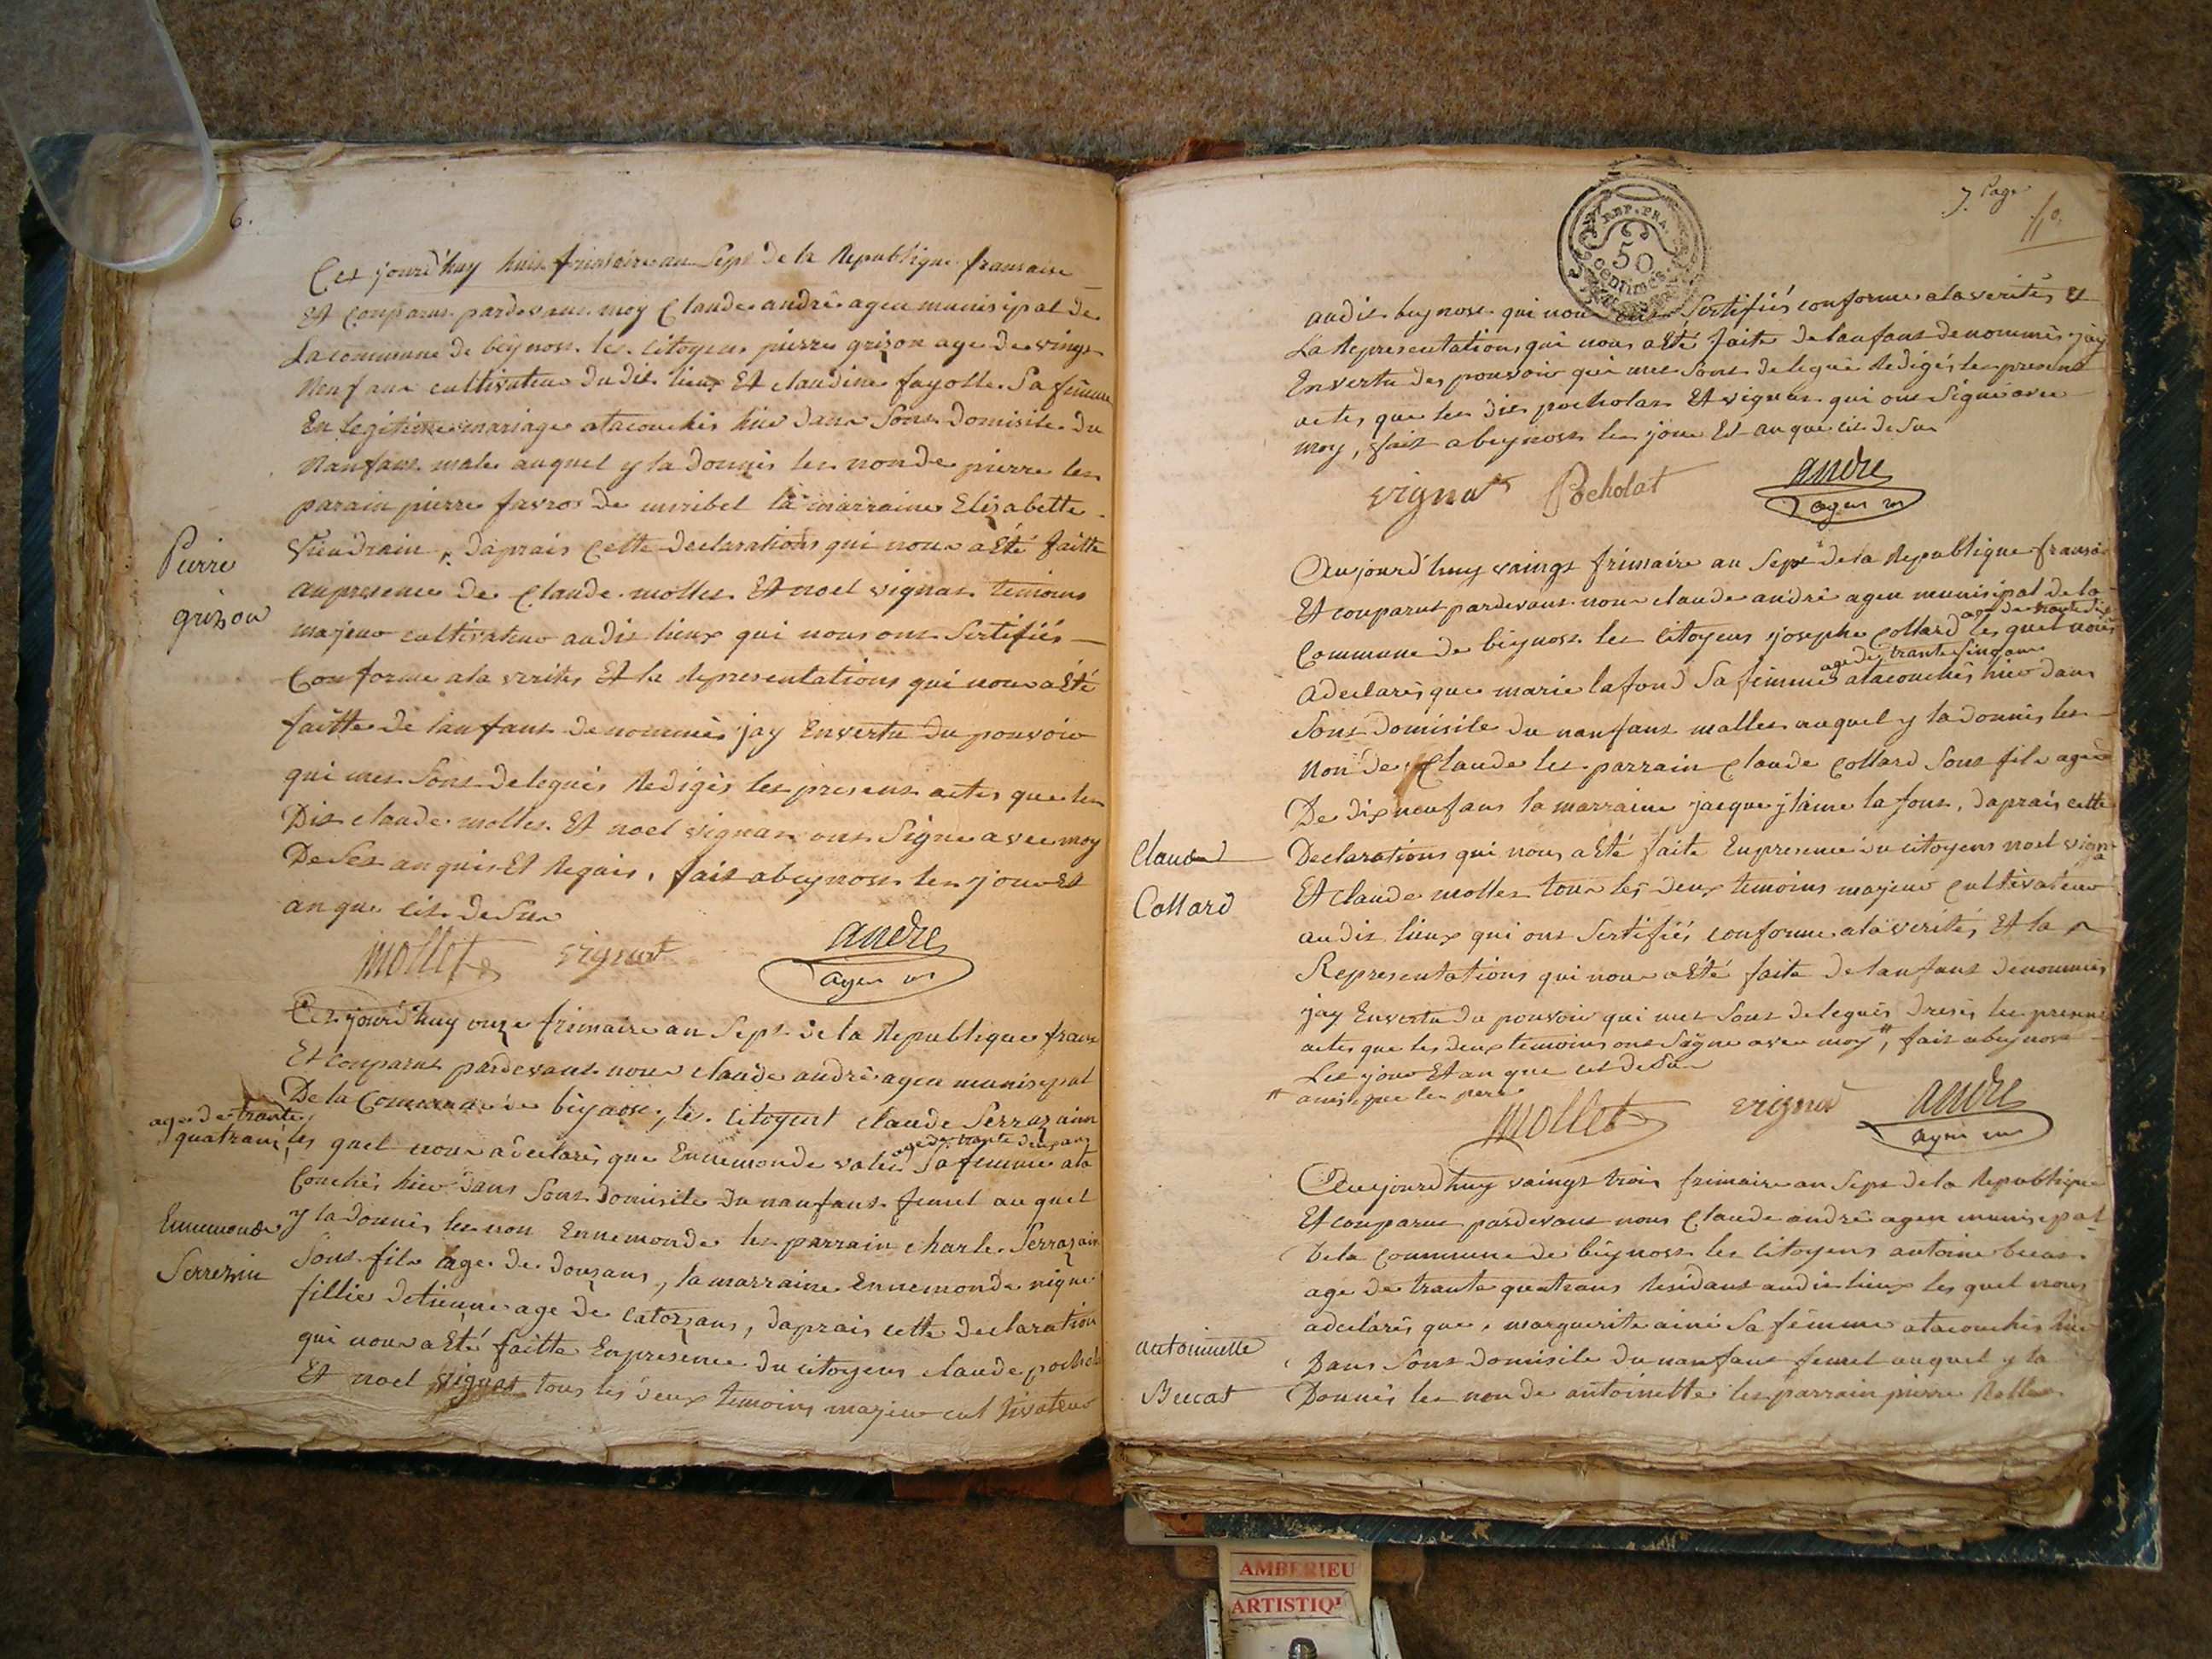 6.
Cet jourd'huy huit frimaire an Sept De la Republique fransaise
Et conparus pardevant moy Claude andré agen munisipal de
La commune de beÿnost les citoyens pierre grizon age de vingt
Neuf ans cultivateur du dit lieux Et claudine fayolle Sa femme
En Legitime mariage atacouchés hier dans Sont Domisile Du
Nanfant male auquel y la donnés les non de pierre les
parain pierre favros de miribel la marraine Elisabette
daprais Cette declarations qui nous a Eté faitte
Pierre
grizon
anpresence de Claude mollet Et noel vignat temoins
majeur cultivateur audit lieux qui nous ont Sertifiés
Conforme ala verités Et la Representations qui nous a Eté
faitte de lanfant denommés jay Envertu du pouvoir
qui mes Sont delegués Redigés les present actes que les
Dit claude mollet Et noel vignat ont Signe avec moy
De Ses anquis Et Regais, fait abeynost les jour Et
an que cit deSur
mollet vignat andre
agen m
Cet jourd'huy onze frimaire an Sept de la Republique frans
Et conparus pardevant nous claude andré agen munisipal
De la Commune de beÿnost, les citoyent claude Serrazain
age de trante
quatrans, les quel nous a declarés que Ennemonde valier age de trante deux ans Sa femme ata
Couchés hier dans Sont domisile du nanfant femel auquel
Ennemonde
Serrezin
y ladonnés les non Ennemonde les parrain charle Serrazain
Sont fils age de douzans, la marraine Ennemonde nique
fillie detienne age de catorzans, daprais cette declaration
qui nous a Eté faitte Enpresence du citoyens claude pochola
Et noel vignat tous les deux temoins majeur cultivateur
7. Page
REP. FRA.
50
CENTIMES
audit beynost qui nous ont Sertifiés conforme ala verités Et
La Representations qui nous a Eté faite de lanfant denommés jay
Envertu des pouvoir qui mes Sont delegués Redigés les present
actes que les dit pocholat Et vignat qui ont Signé avec
moy, fait abeynost les jour Et an que cit deSur
vignat Pocholat andre
agen m
Aujourd'huy vaingt frimaire an Sept dela Republique fransai
Et conparus pardevant nous claude andré agen munisipal de la
Commune de beÿnost les citoyens josephe Collard les quel nous
age de trante Sinq ans
a declarés que marie lafond Sa femme atacouchés hier dans
Sont domisile du nanfant malles auquel y ladonnés les
Non de Claude les parrain Claude Collard Sont fils age
De dix neuf ans la marraine jacque lafont, daprais cette
Claude
Collard
Declarations qui nous a Eté faite Enpresence du citoyens noel vigna
Et claude mollet tous les deux temoins majeur cultivateur
audit lieux qui ont Sertifiés conforme ala verités Et la
Representations qui nous a Eté faite de lanfant denommés
jay Envertu du pouvoir qui mes Sont delegués Dresés les present
actes que les deux temoins ont Signe avec moy #, fait abeynost
Les jour Et an que cit deSur
# ansi que les pere
mollet vignat andre
agen m
Aujourdhuy vaingt trois frimaire an Sept dela Republique
Et conparus pardevant nous Claude andré agen munisipal
De la Commune de beÿnost les citoyens antoine becat
age de trante quatrans Residant audit lieux les quel nous
adeclarés que marguerite ainé Sa femme atacouchés hier
antoinnette
Beccat
Dans Sont domisile du nanfant femel auquel y la
Donnés les non de antoinette les parrain pierre
AMBERIEU
ARTISTIQ